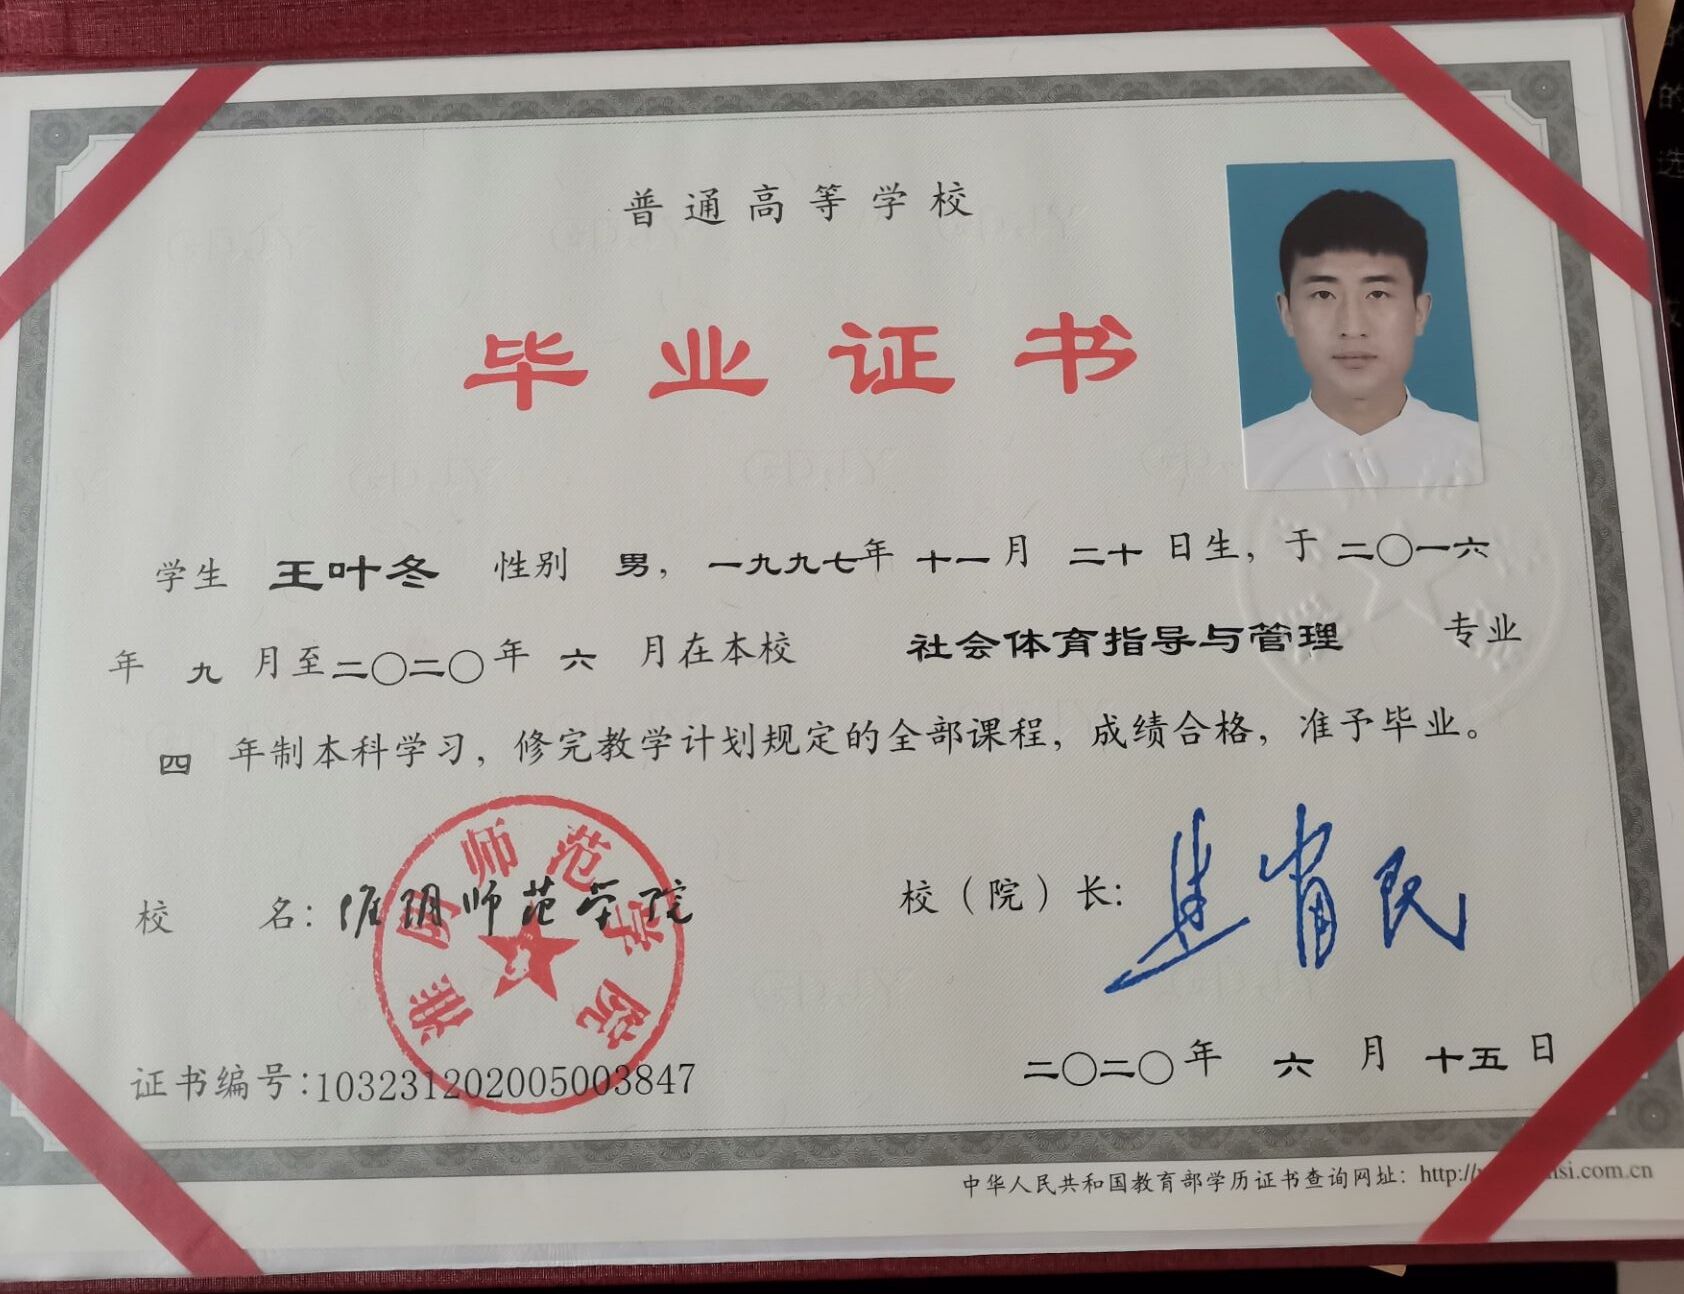 普通高等学校
毕业证书
学生 王叶冬 性别 男，一九九七年 十一月 二十 日生，于 二〇一六
年 九 月至二〇二〇年 六 月在本校 社会体育指导与管理 专业
四 年制本科学习，修完教学计划规定的全部课程，成绩合格，准予毕业。
校 名：淮阴师范学院
淮阴师范学院
校（院）长：
证书编号：103231202005003847
二〇二〇年 六 月 十五 日
中华人民共和国教育部学历证书查询网址：http://
si.com.cn